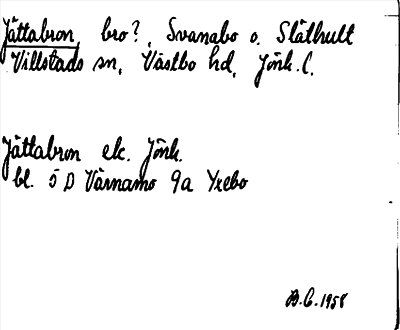 Jättabron, bro?, Svanabo o. Slåthult
Villstads sn, Västbo hd, Jönk. l.
Jättabron ek. Jönk.
bl. 5 D Värnamo 9a Yxebo
B.G. 1958